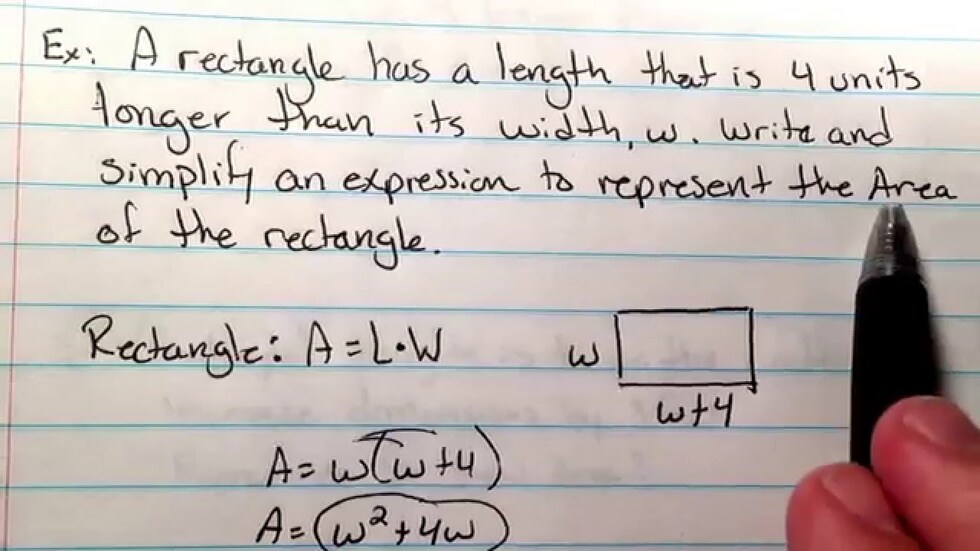 Ex: A rectangle has a length that is 4 units
longer than its width, w. Write and
simplify an expression to represent the Area
of the rectangle.
Rectangle: A = L·W
w
w+4
A = w(w+4)
A = w²+4w